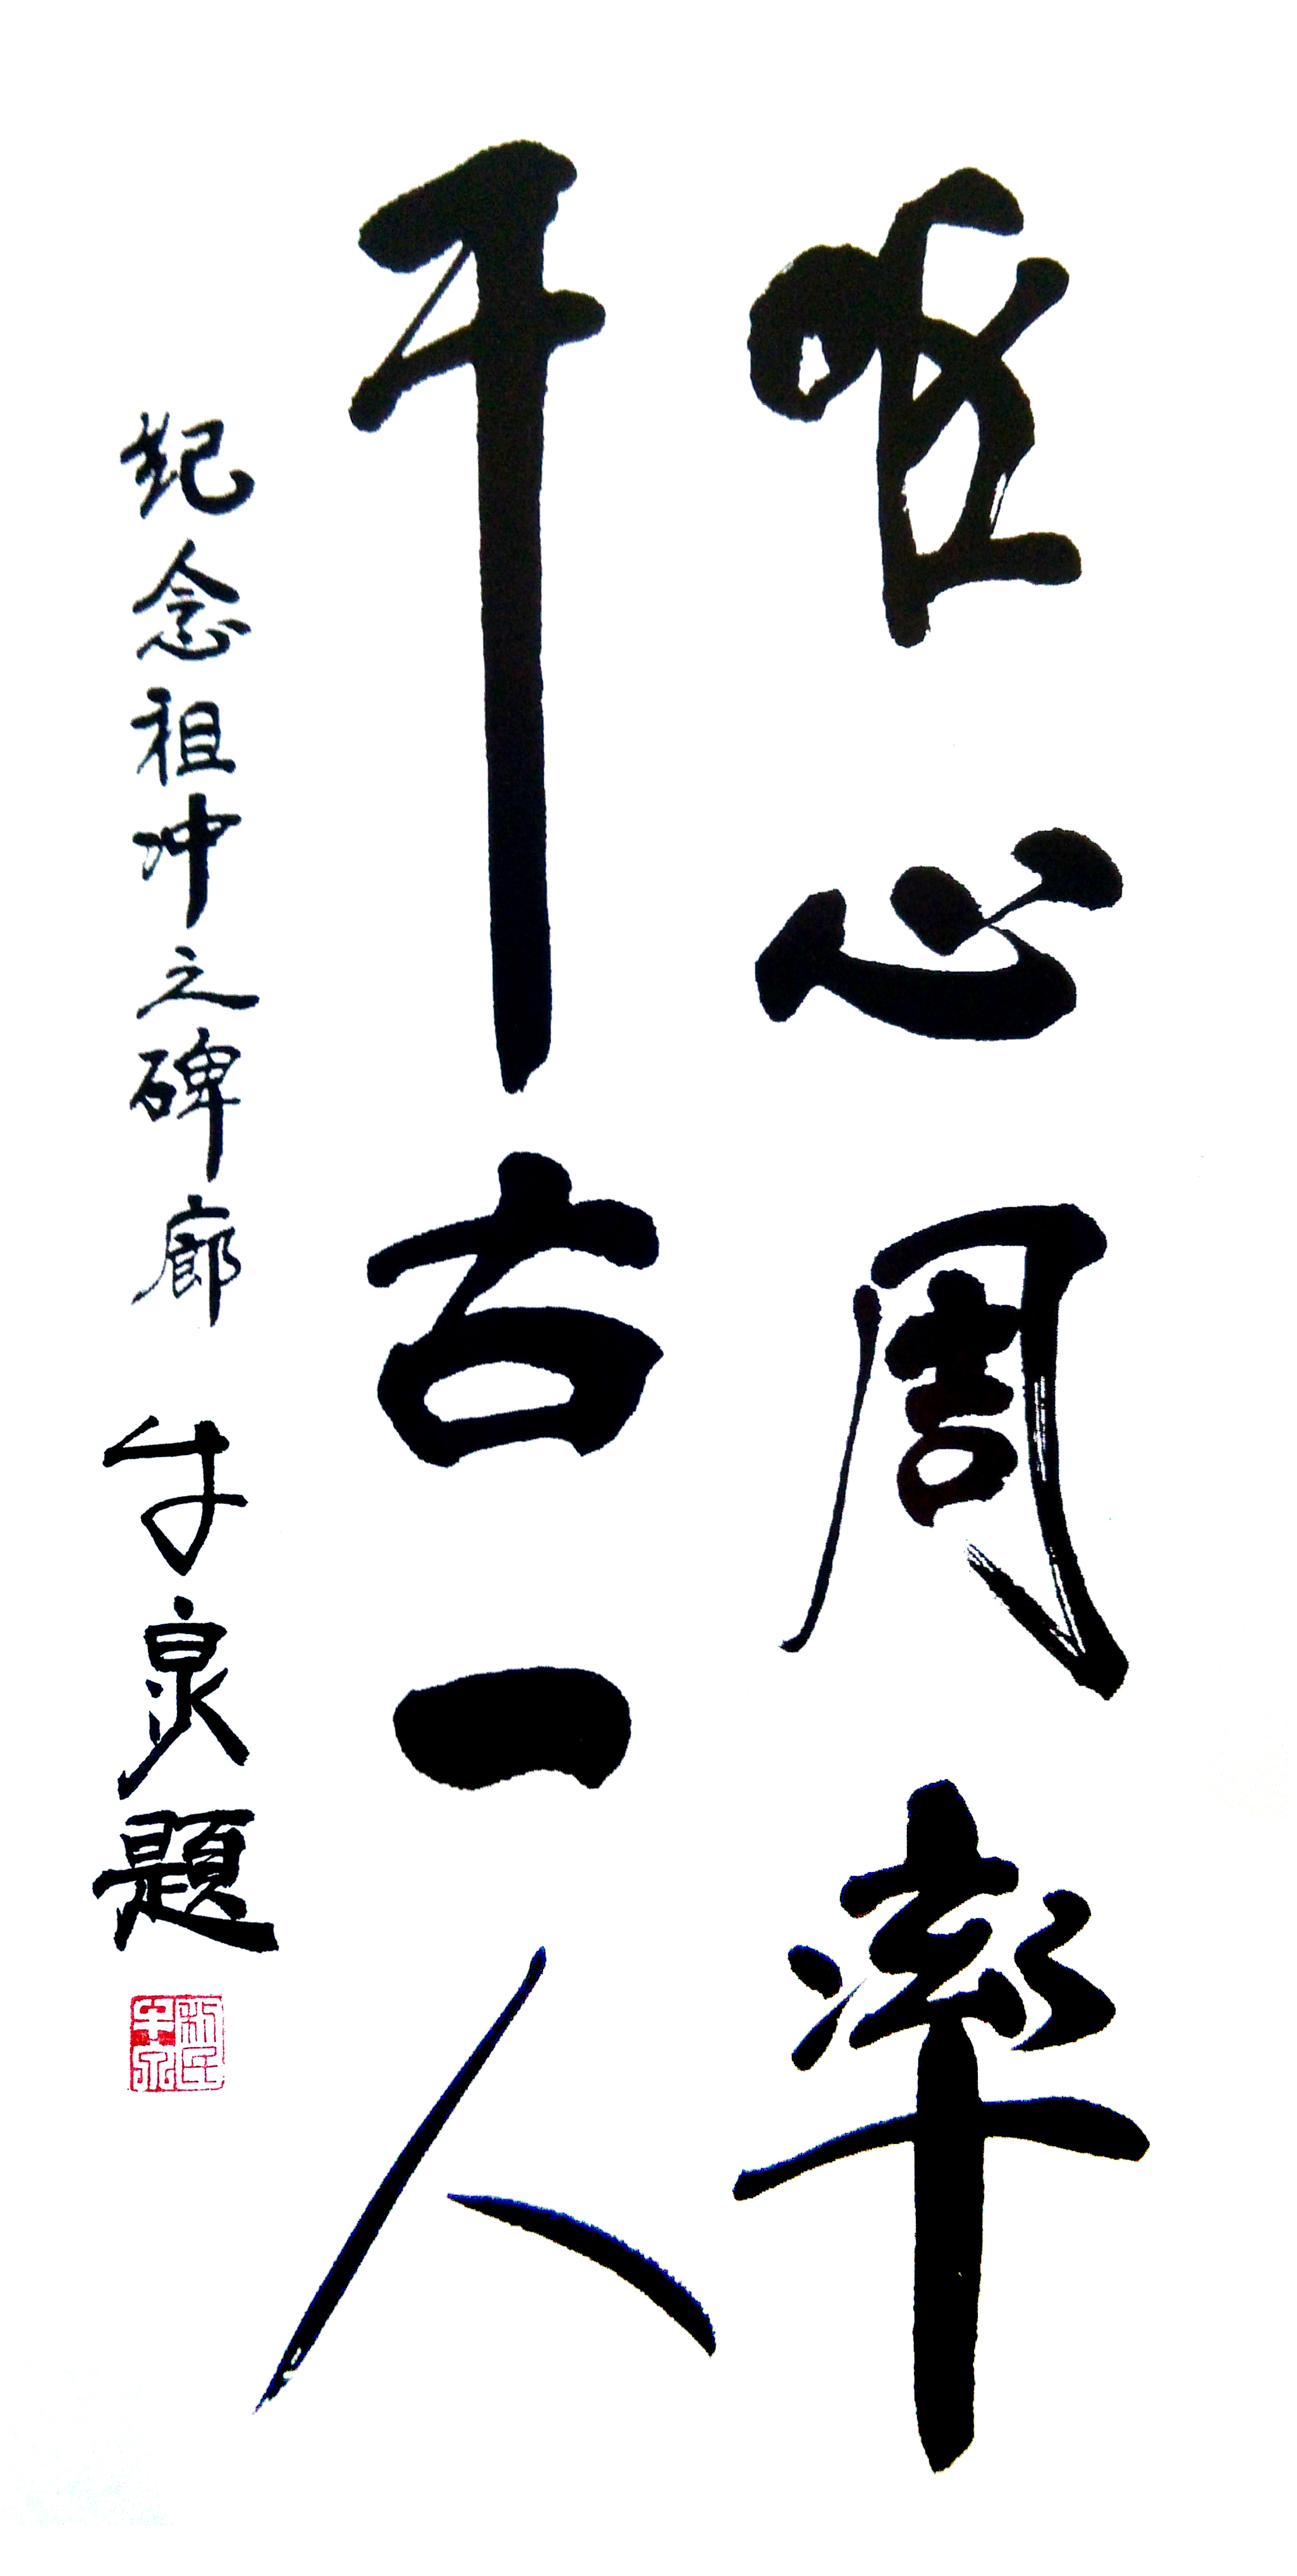 唯心周率
千古一人
纪念祖冲之碑廊 牛泉题